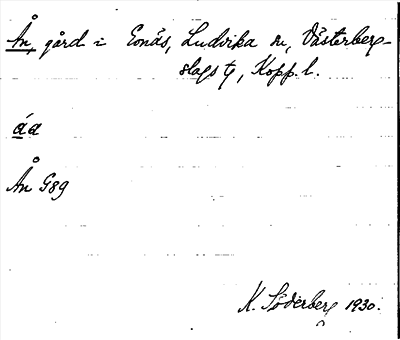 Ån, gård i Eonäs, Ludvika sn, Västerberg-
slags tg, Kopp. l.
áa
Ån G89
K. Söderberg 1930.